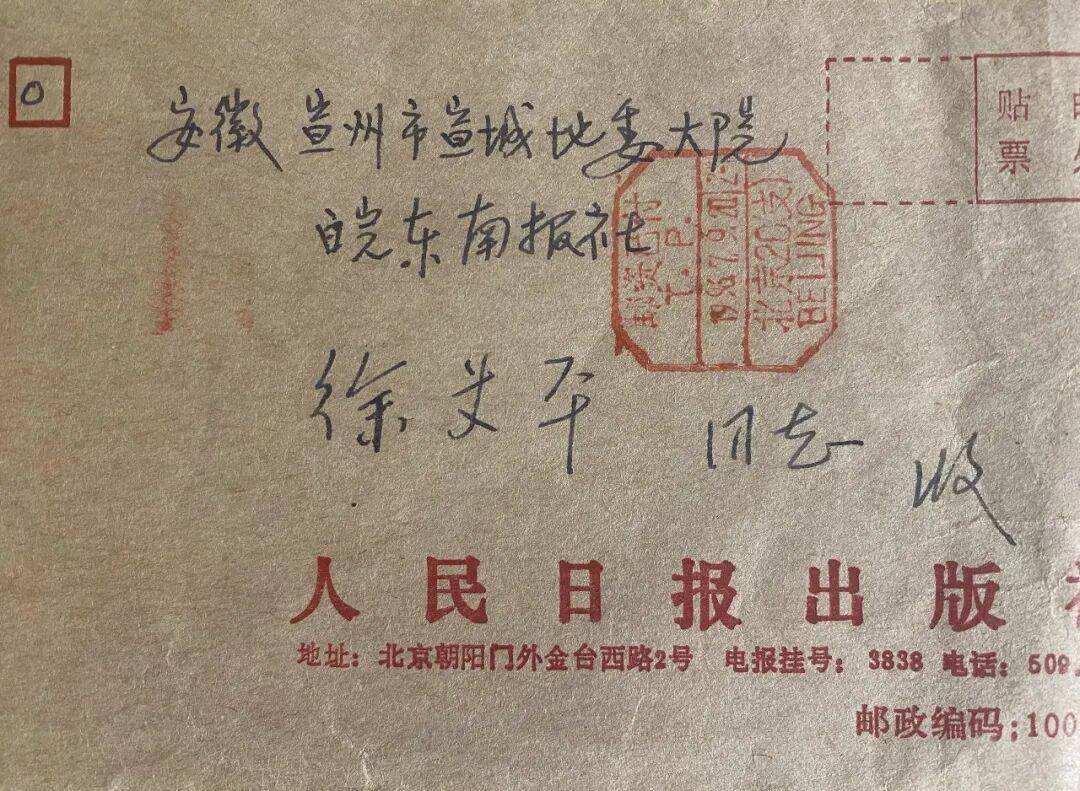 0
安徽宣州市宣城地委大院
皖东南报社
贴
票
邮资已付
T. P.
1987.9.20
北京20支
BEIJING
徐文平 同志 收
人民日报出版
地址：北京朝阳门外金台西路2号 电报挂号：3838 电话：509
邮政编码：100